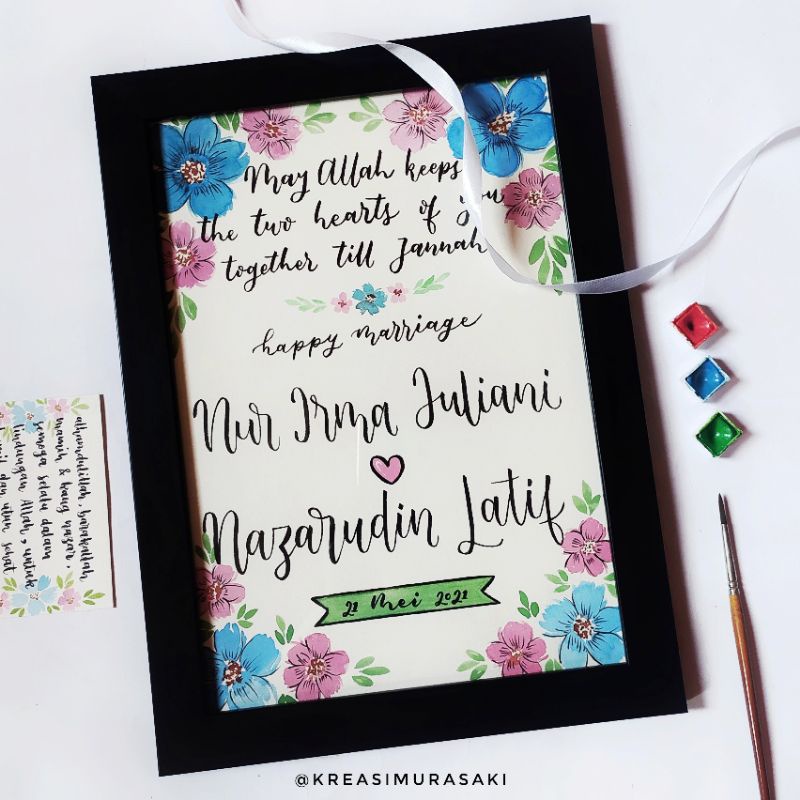 May Allah keeps
the two hearts of you
together till Jannah
happy marriage
Nur Irma Juliani
Nazarudin Latif
21 Mei 2021
alhamdulillah, barakallah
mamih & kang nazar,
semoga selalu dalam
lindungan Allah, untuk
dan utun sehat
@KREASIMURASAKI